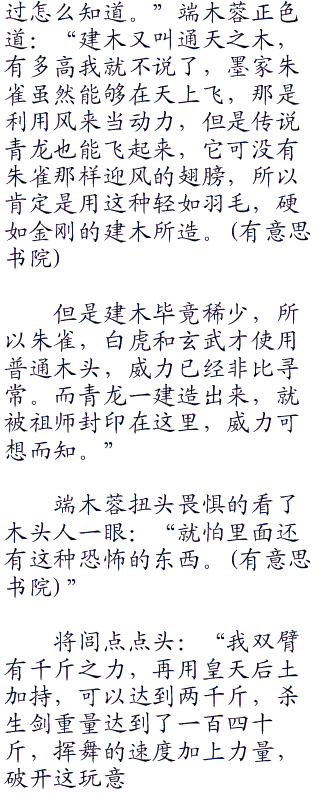 过怎么知道。”端木蓉正色
道：“建木又叫通天之木，
有多高我就不说了，墨家朱
雀虽然能够在天上飞，那是
利用风来当动力，但是传说
青龙也能飞起来，它可没有
朱雀那样迎风的翅膀，所以
肯定是用这种轻如羽毛，硬
如金刚的建木所造。(有意思
书院)
但是建木毕竟稀少，所
以朱雀，白虎和玄武才使用
普通木头，威力已经非比寻
常。而青龙一建造出来，就
被祖师封印在这里，威力可
想而知。”
端木蓉扭头畏惧的看了
木头人一眼：“就怕里面还
有这种恐怖的东西。(有意思
书院)”
将闾点点头：“我双臂
有千斤之力，再用皇天后土
加持，可以达到两千斤，杀
生剑重量达到了一百四十
斤，挥舞的速度加上力量，
破开这玩意